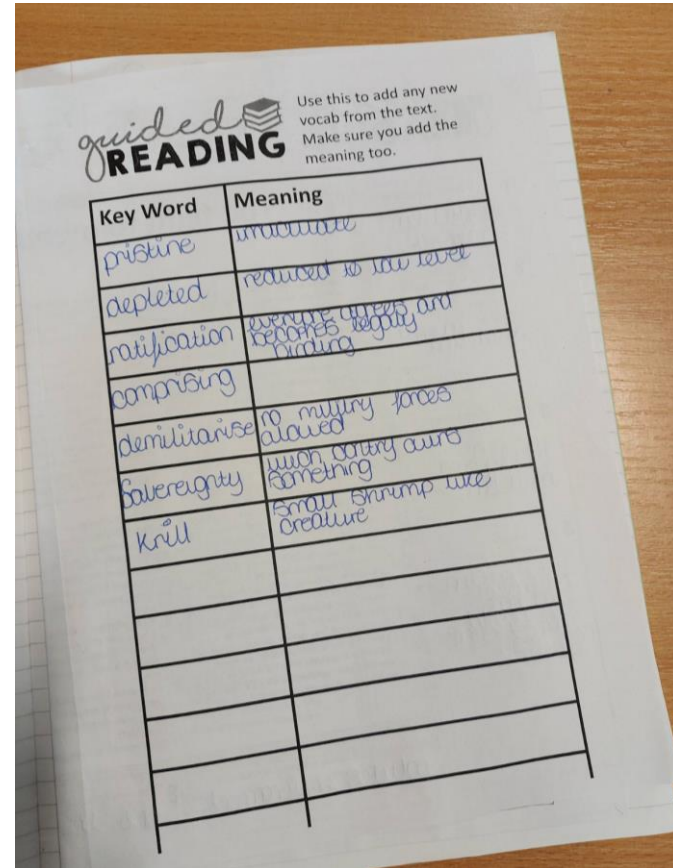 guided
READING
Use this to add any new
vocab from the text.
Make sure you add the
meaning too.
Key Word Meaning
pristine immaculate
depleted reduced to low level
ratification everyone agrees and
becomes legally
binding
comprising
demilitarise no military forces
alowed
Sovereignty which contry owns
something
Krill Small shrimp like
creature